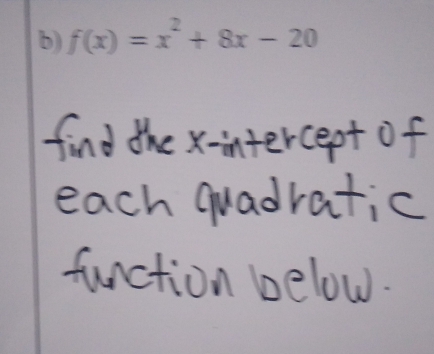 b) f(x) = x² + 8x − 20
find the x-intercept of
each quadratic
function below.